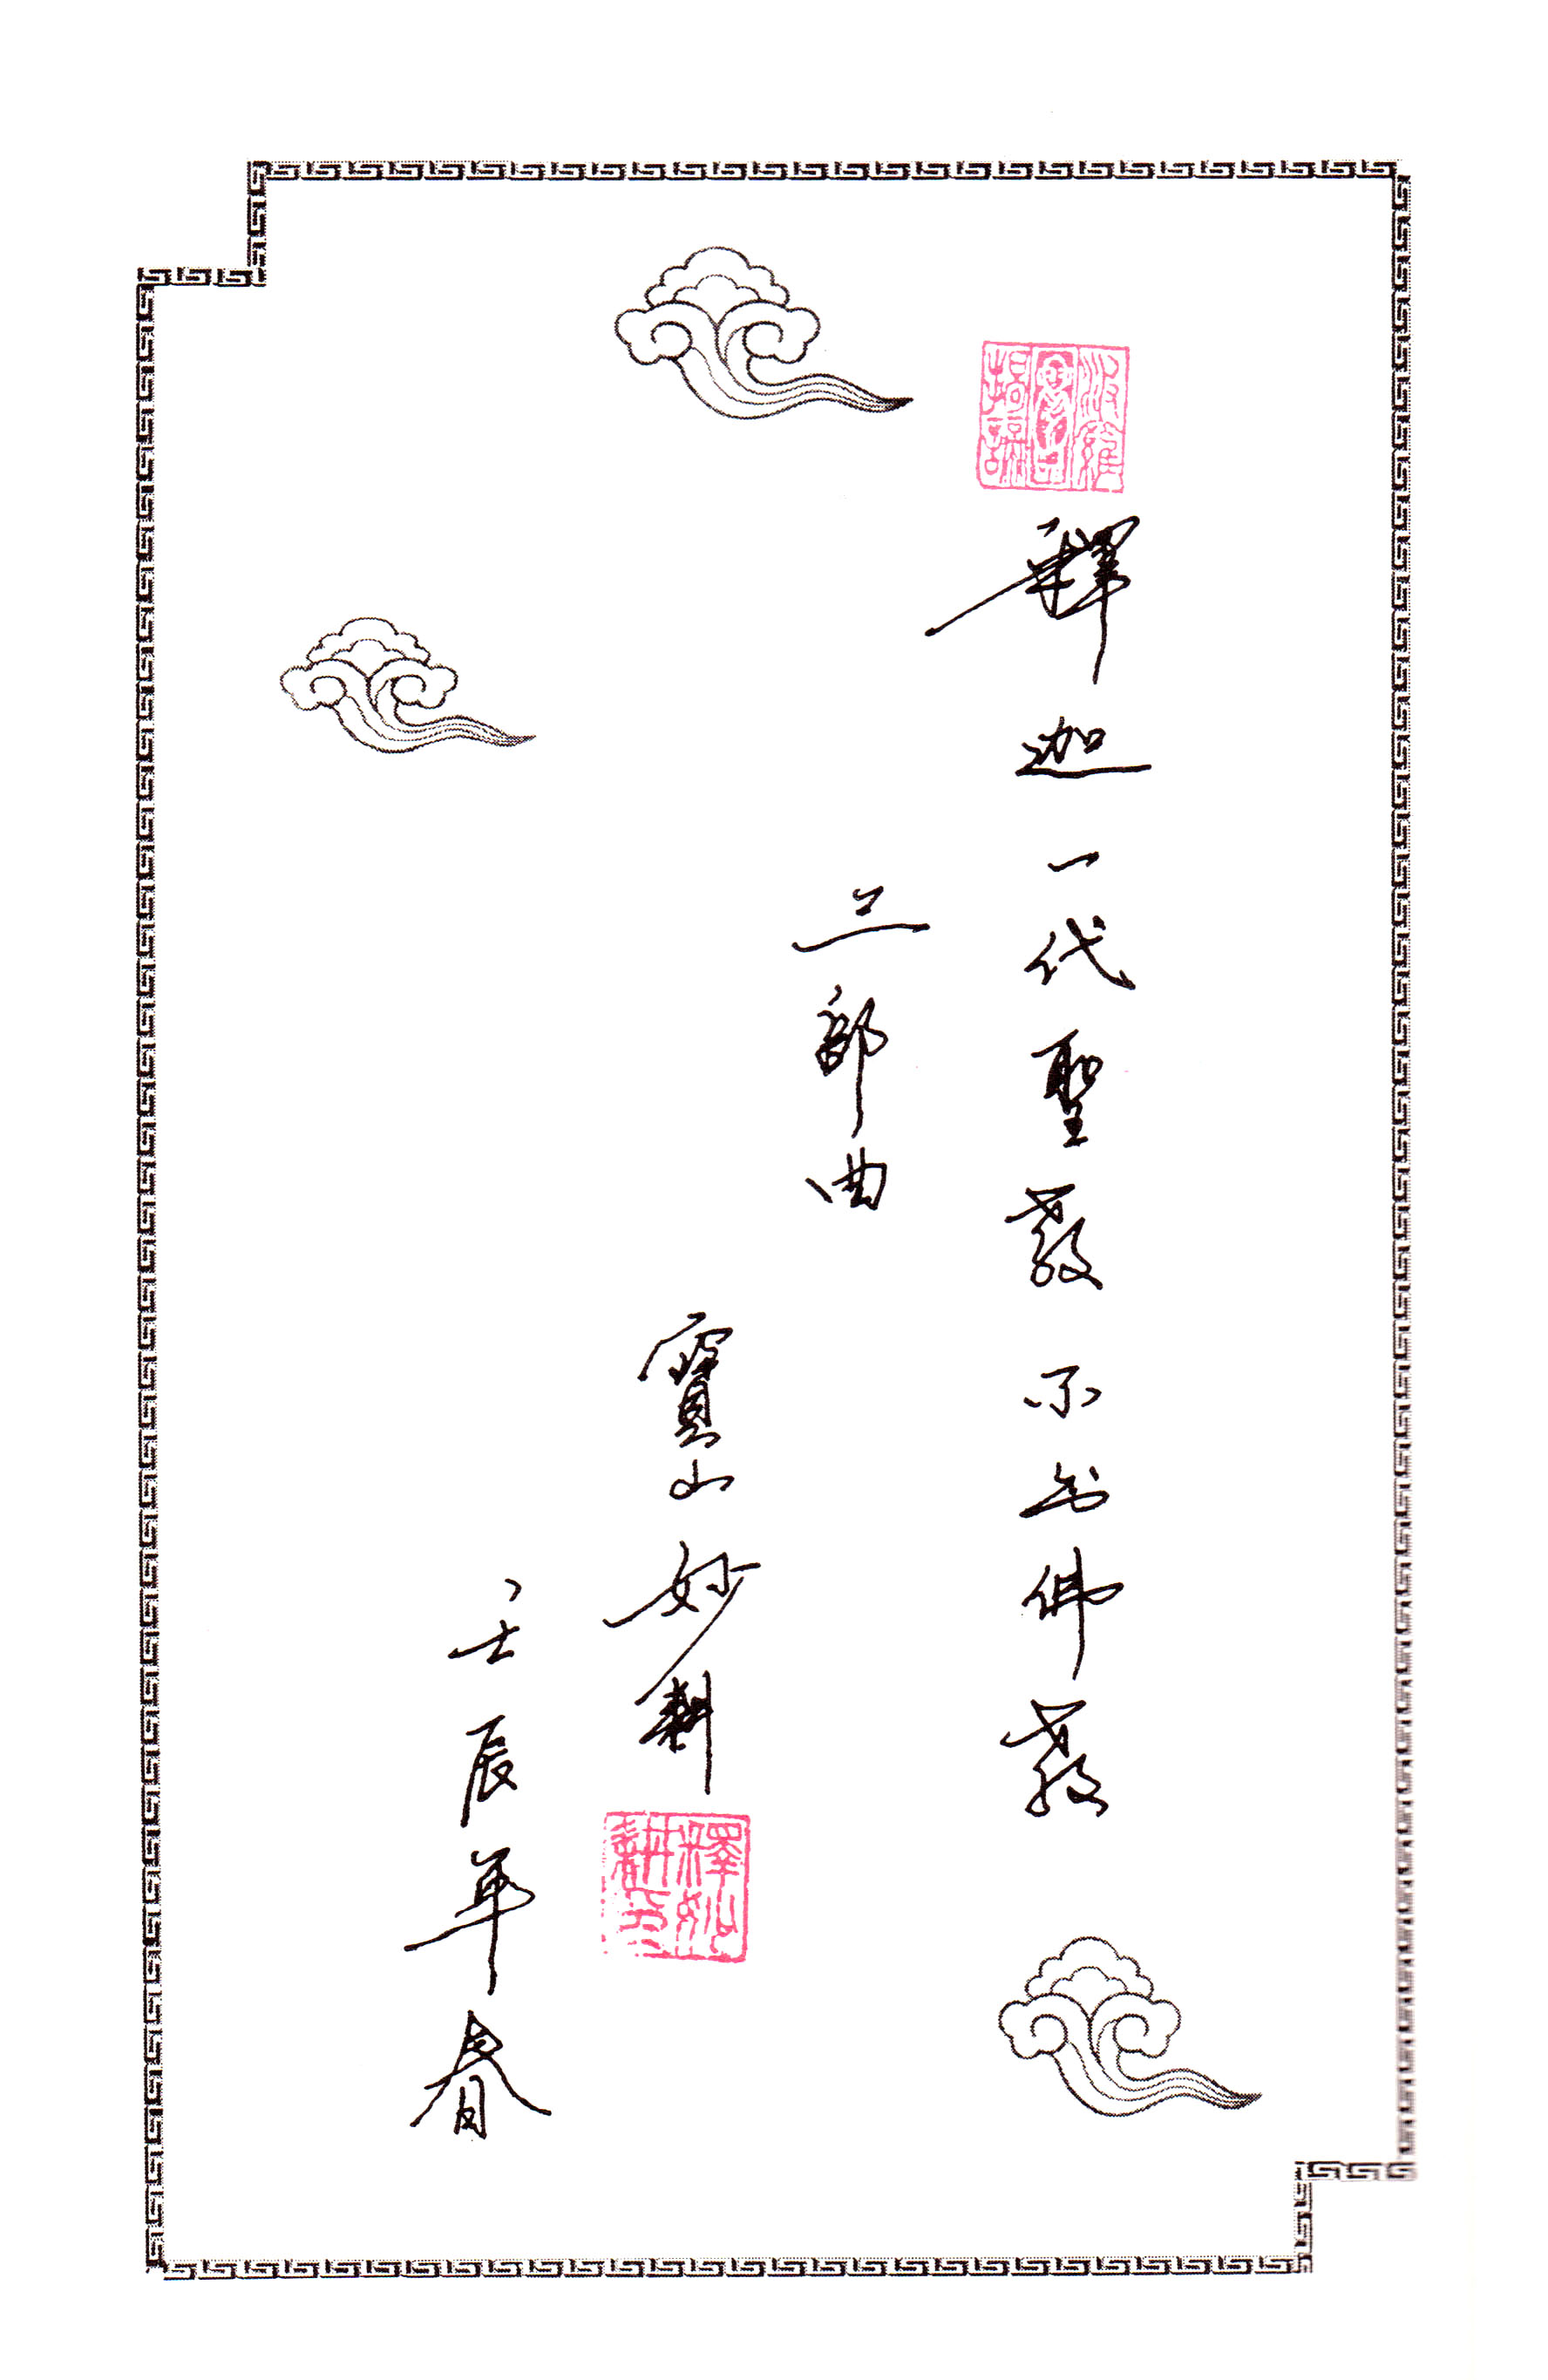 釋迦一代聖教佛教
三部曲
寶山妙耕
釋妙耕印
壬辰年春